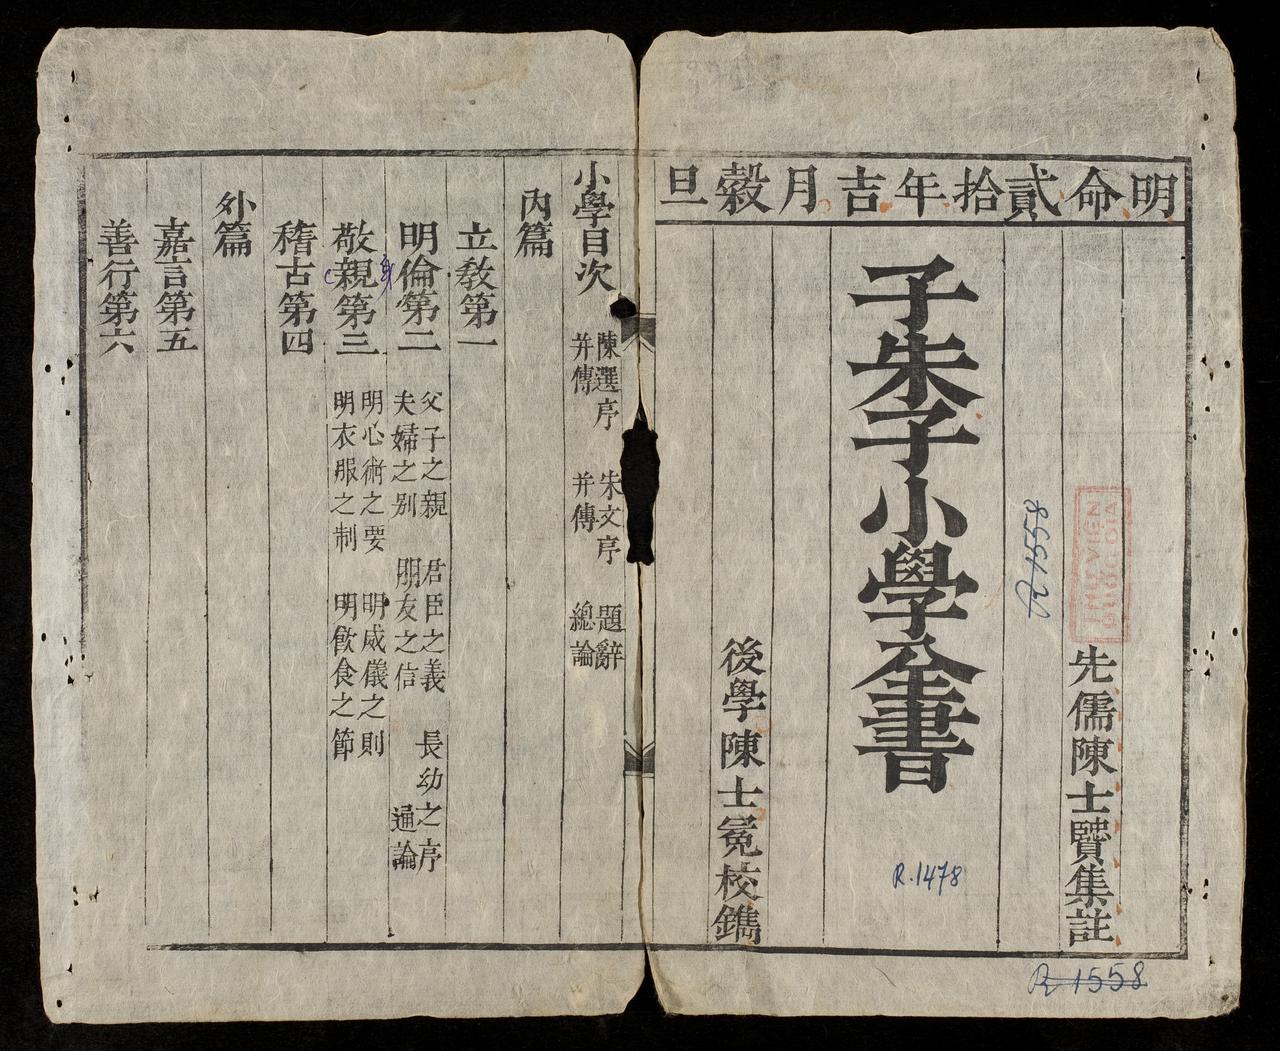 明命貳拾年吉月穀旦
先儒陳士賢集註
子朱子小學全書
後學陳士冕校鐫
R.1478
R 1558
R 1558
THƯ VIỆN
小學目次
陳選序 朱文序 題辭
并傳 并傳 總論
內篇
立敎第一
明倫第二
父子之親 君臣之義 長幼之序
夫婦之別 朋友之信 通論
敬親第三
明心術之要 明威儀之則
明衣服之制 明飮食之節
稽古第四
外篇
嘉言第五
善行第六